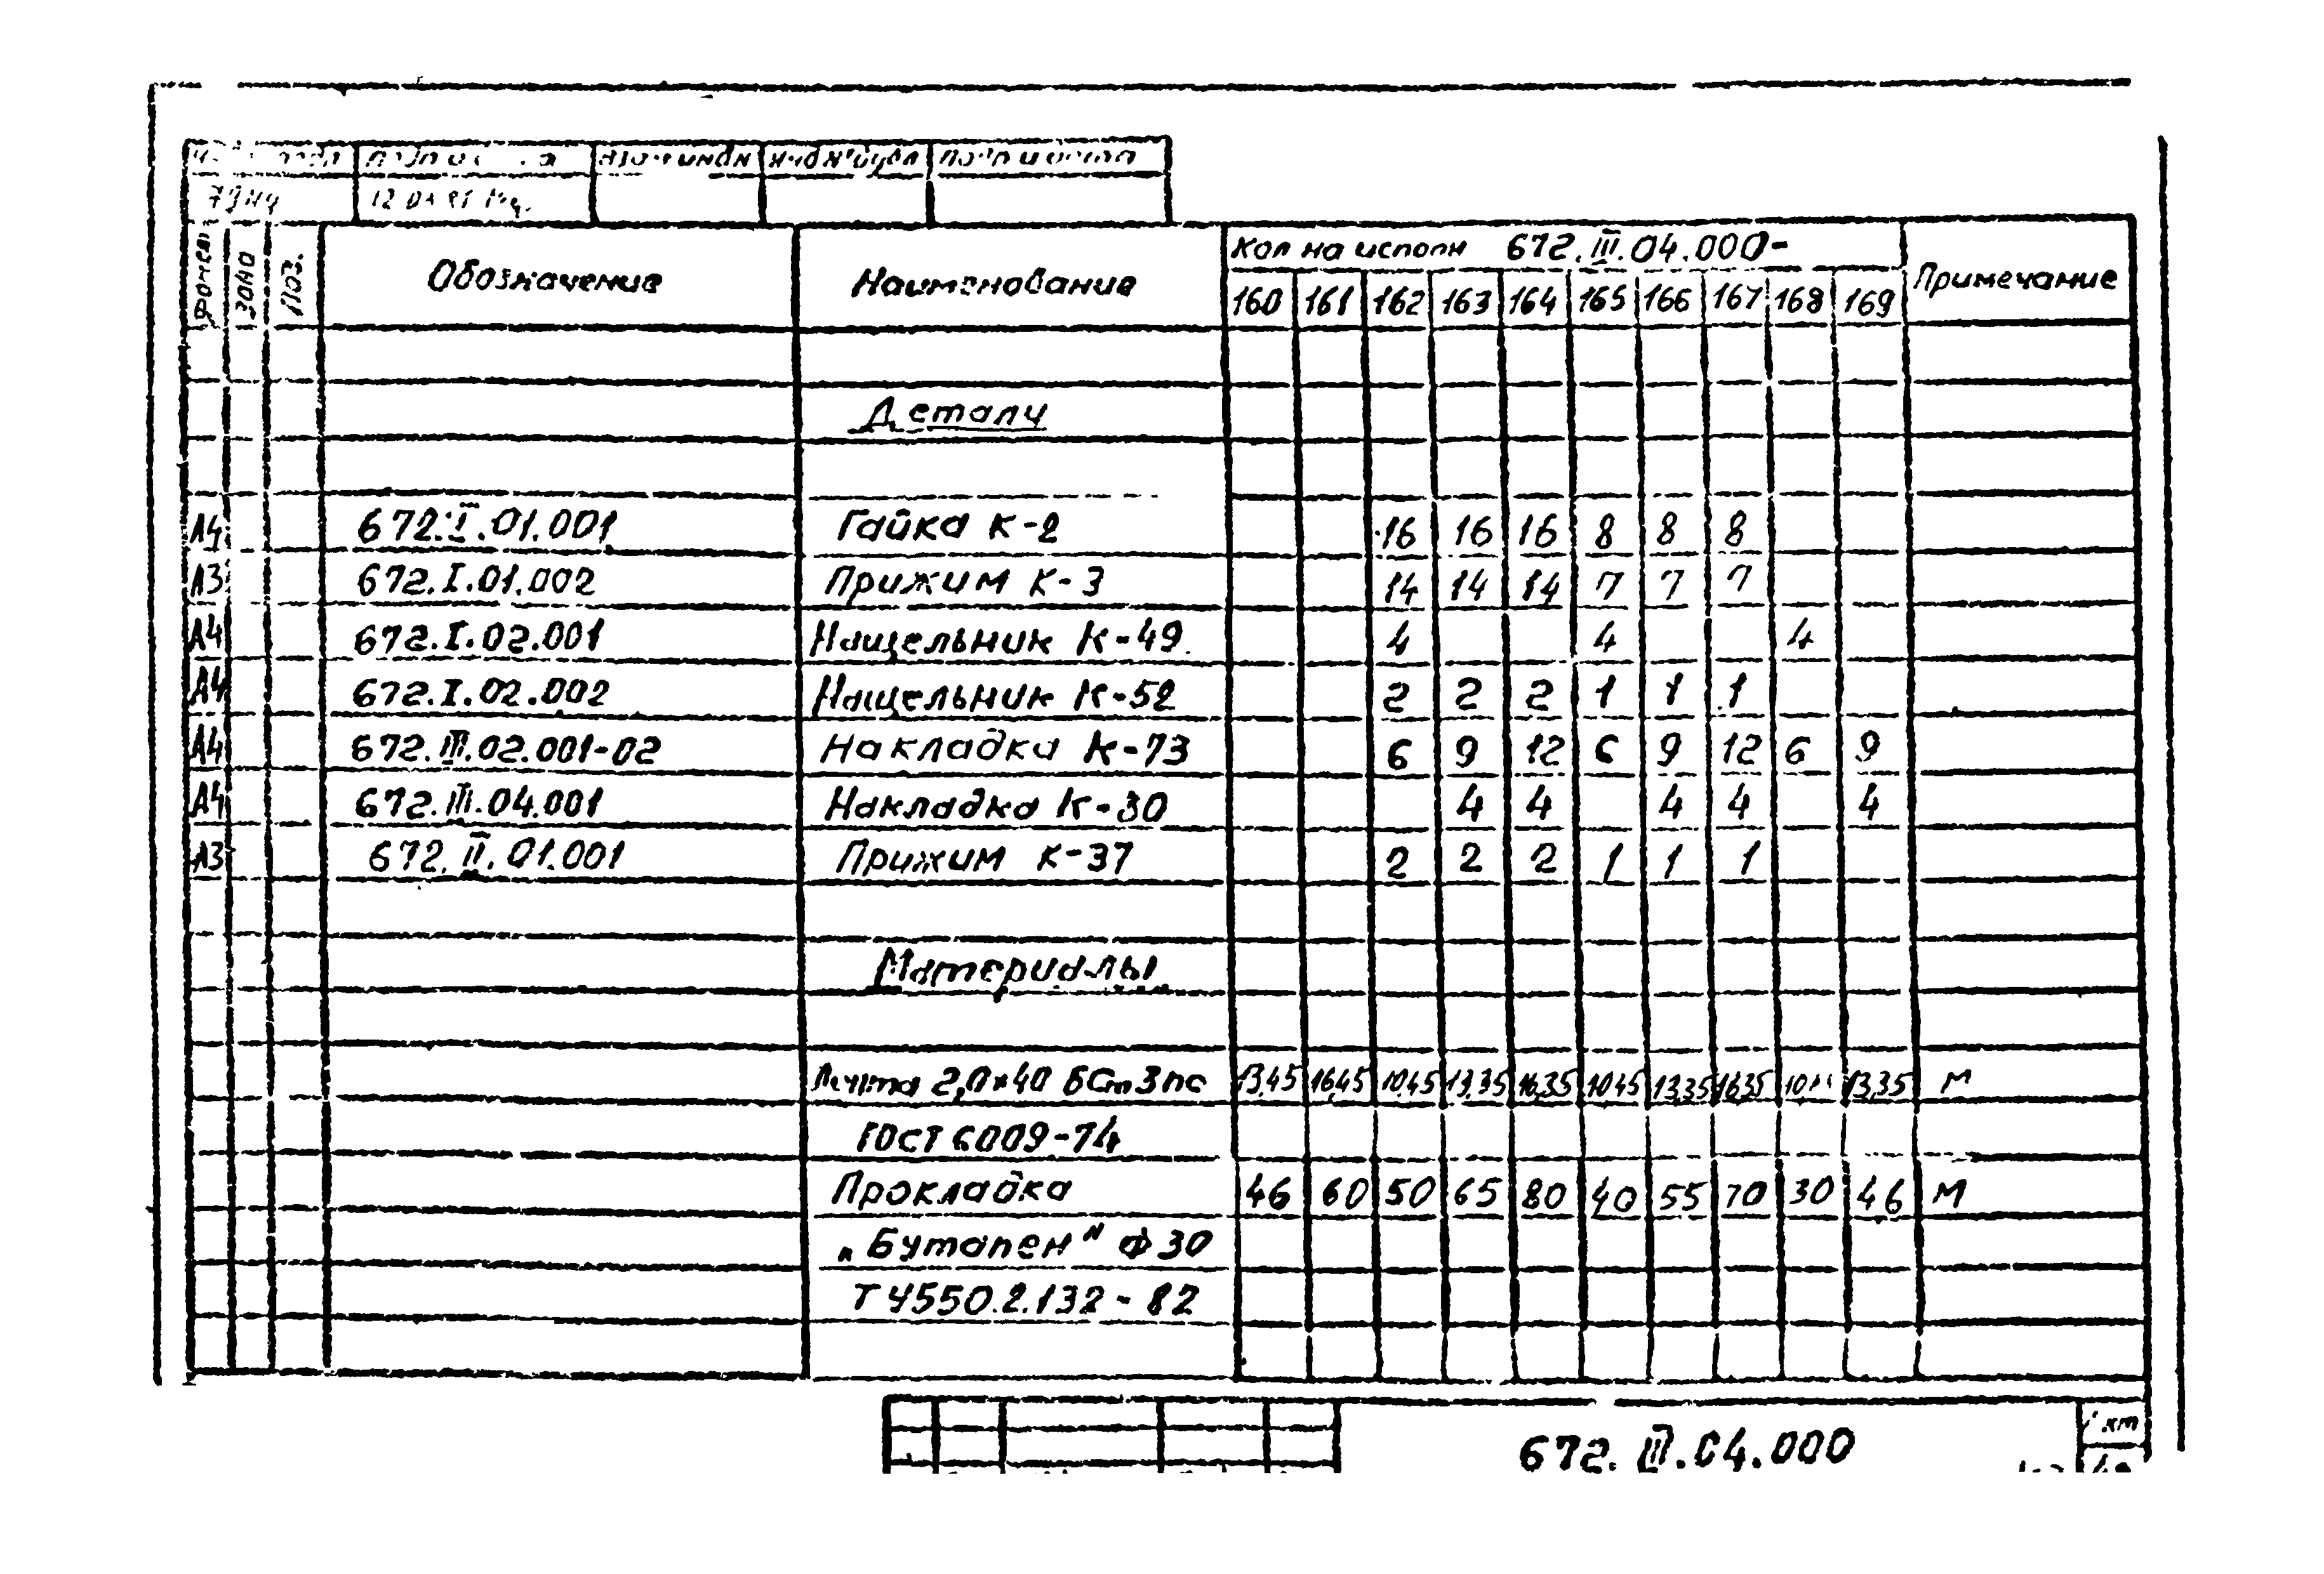 подл Подп и Взам инв № Инв № дубл Подп и дата
Формат Зона Поз. Обозначение Наименование Кол на исполн 672.III.04.000- Примечание
160 161 162 163 164 165 166 167 168 169
Детали
А4 672.I.01.001 Гайка К-2 16 16 16 8 8 8
А3 672.I.01.002 Прижим К-3 14 14 14 7 7 7
А4 672.I.02.001 Нащельник К-49 4 4 4
А4 672.I.02.002 Нащельник К-52 2 2 2 1 1 1
А4 672.III.02.001-02 Накладка К-73 6 9 12 6 9 12 6 9
А4 672.III.04.001 Накладка К-30 4 4 4 4 4
А3 672.II.01.001 Прижим К-37 2 2 2 1 1 1
Материалы
Лента 2,0×40 БСт3пс 13,45 16,45 10,45 13,35 16,35 10,45 13,35 16,35 13,35 м
ГОСТ 6009-74
Прокладка 46 60 50 65 80 40 55 70 30 46 М
„Бутапен" Ф30
ТУ550.2.132-82
672.III.04.000